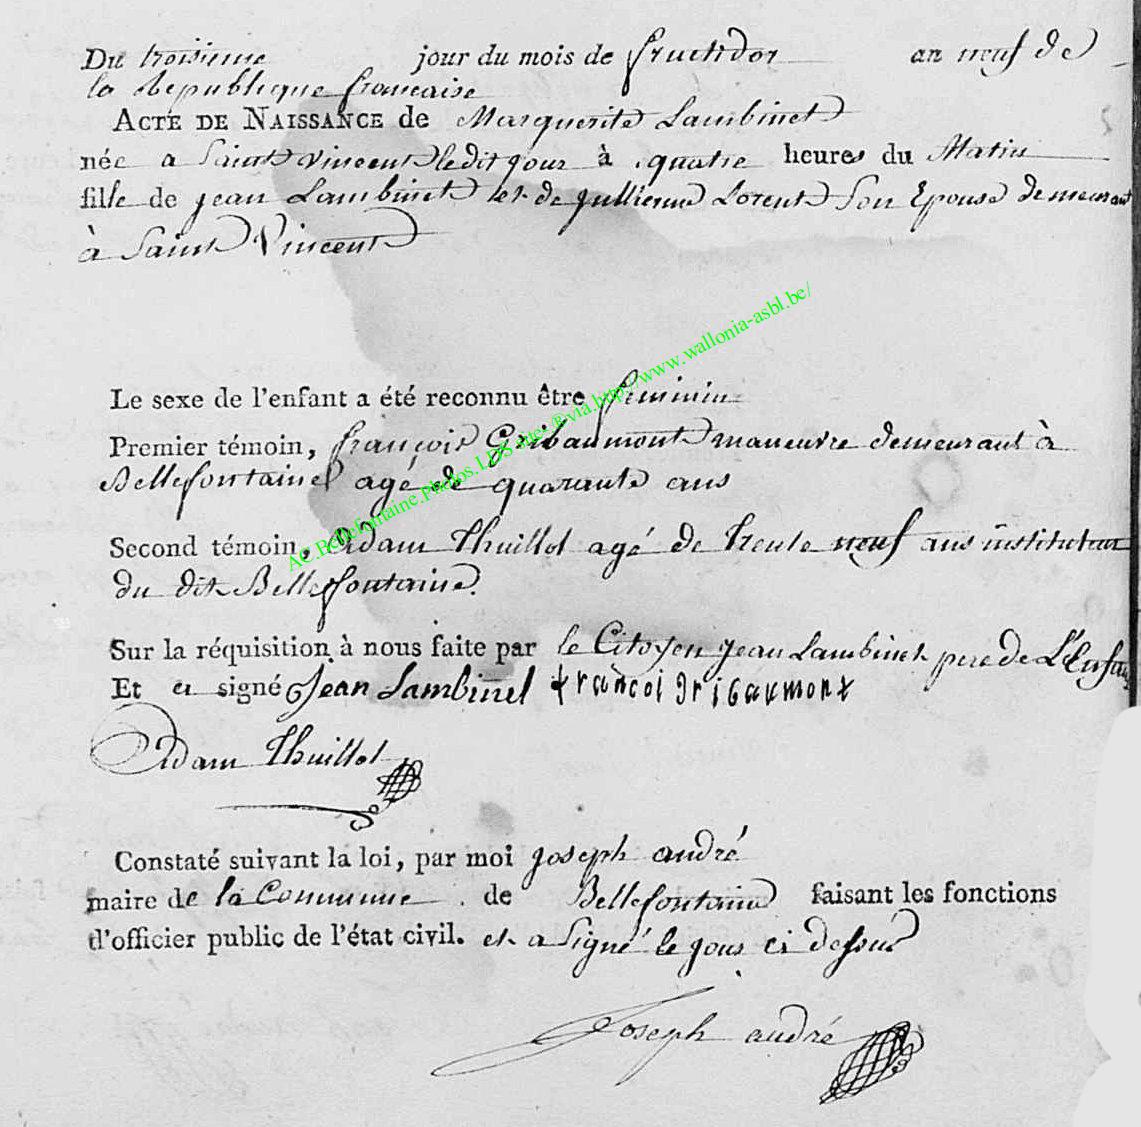 Du troisieme jour du mois de fructidor an neuf de
la republique francaise
ACTE DE NAISSANCE de Marguerite Lambinet
née a Saint vincent ledit jour à quatre heures du Matin
fille de jean Lambinet et de jullienne Lorent Son Epouse demeurant
à Saint Vincent
Le sexe de l'enfant a été reconnu être feminin
Premier témoin, françois Gribaumont maneuvre demeurant à
Bellefontaine agé de quarante ans
Second témoin, Adam Thuillot agé de trente neuf ans instituteur
du dit Bellefontaine.
Sur la réquisition à nous faite par le Citoyen jean Lambinet pere de L'Enfant
Et a signé Jean Lambinet francoi gribaumont
Adam Thuillot
Constaté suivant la loi, par moi joseph andré
maire de la Commune de Bellefontaine faisant les fonctions
d'officier public de l'état civil. et a Signé le jour ci dessus
Joseph andré
AC.Bellefontaine.Photos.LDS via http://www.wallonia-asbl.be/